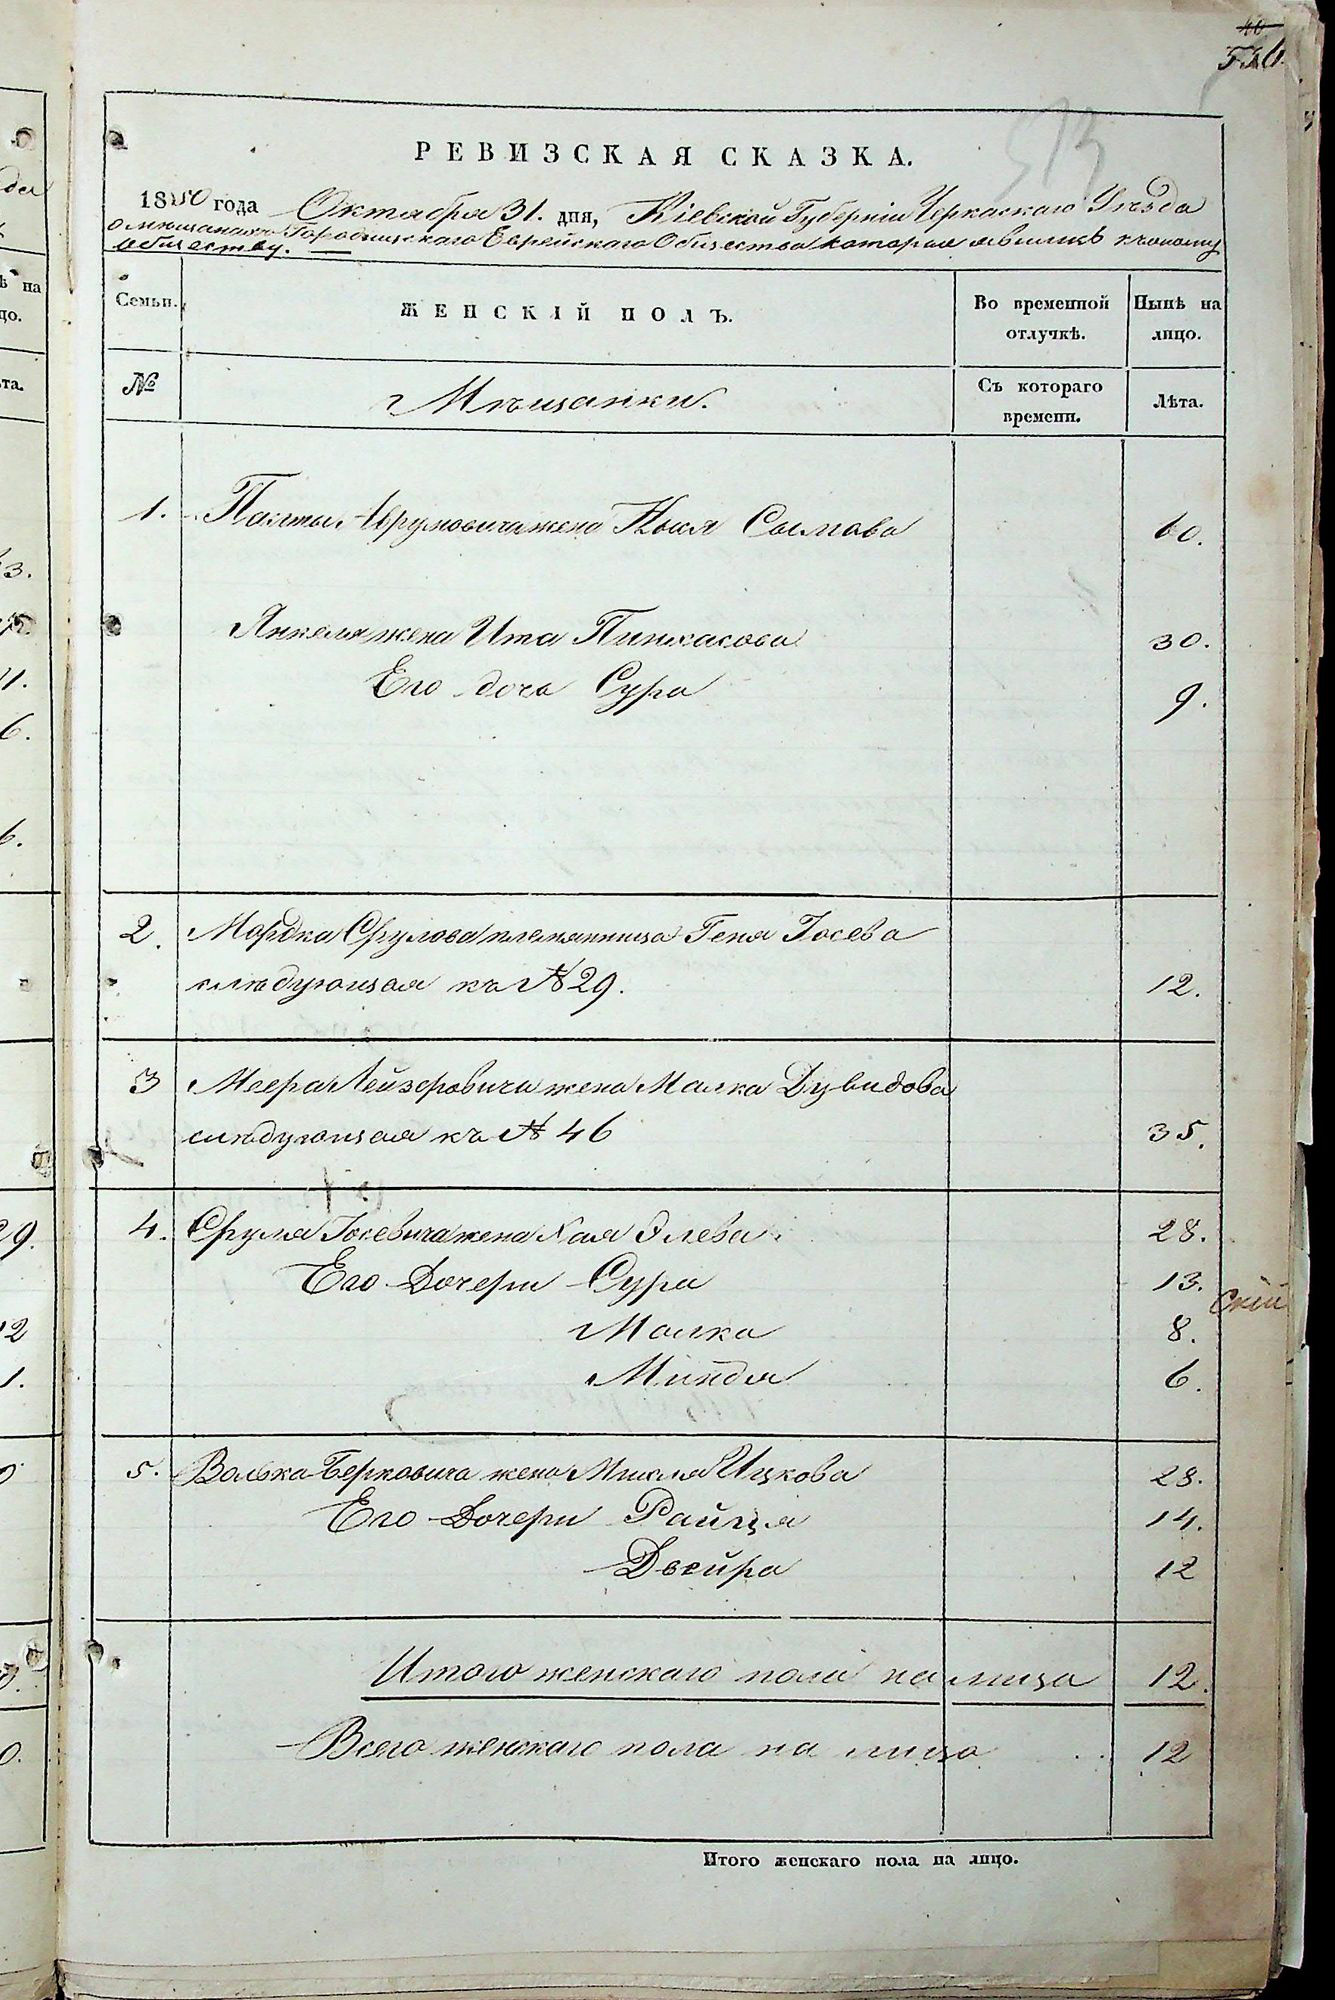 40
536.
513
РЕВИЗСКАЯ СКАЗКА.
1850 года Октября 31. дня, Кіевской Губерніи Черкаскаго Уѣзда
о мѣщанахъ Городищскаго Еврейскаго Общества которыя явились къ оному
обществу.
Семьи. ЖЕНСКІЙ ПОЛЪ. Во временной отлучкѣ. Нынѣ на лицо.
№ Мѣщанки. Съ котораго времени. Лѣта.
1. Аврумовича жена Сымова 60.
Янкеля жена Ита Пинхасова 30.
Его дочь Сура 9.
2. Мордка Срулова племянница Геня Іосева
слѣдующая къ № 29. 12.
3 Меера Лейзеровича жена Малка Дувидова
слѣдующая къ № 46 35.
4. Сруля Іосевича жена Хая Элева 28.
Его Дочери Сура 13.
Малка 8.
Миндя 6.
5. Волька Берковича жена Ицкова 28.
Его Дочери Райця 14.
Двейра 12
Итого женскаго пола на лицо 12.
Всего женскаго пола на лицо 12
Итого женскаго пола на лицо.